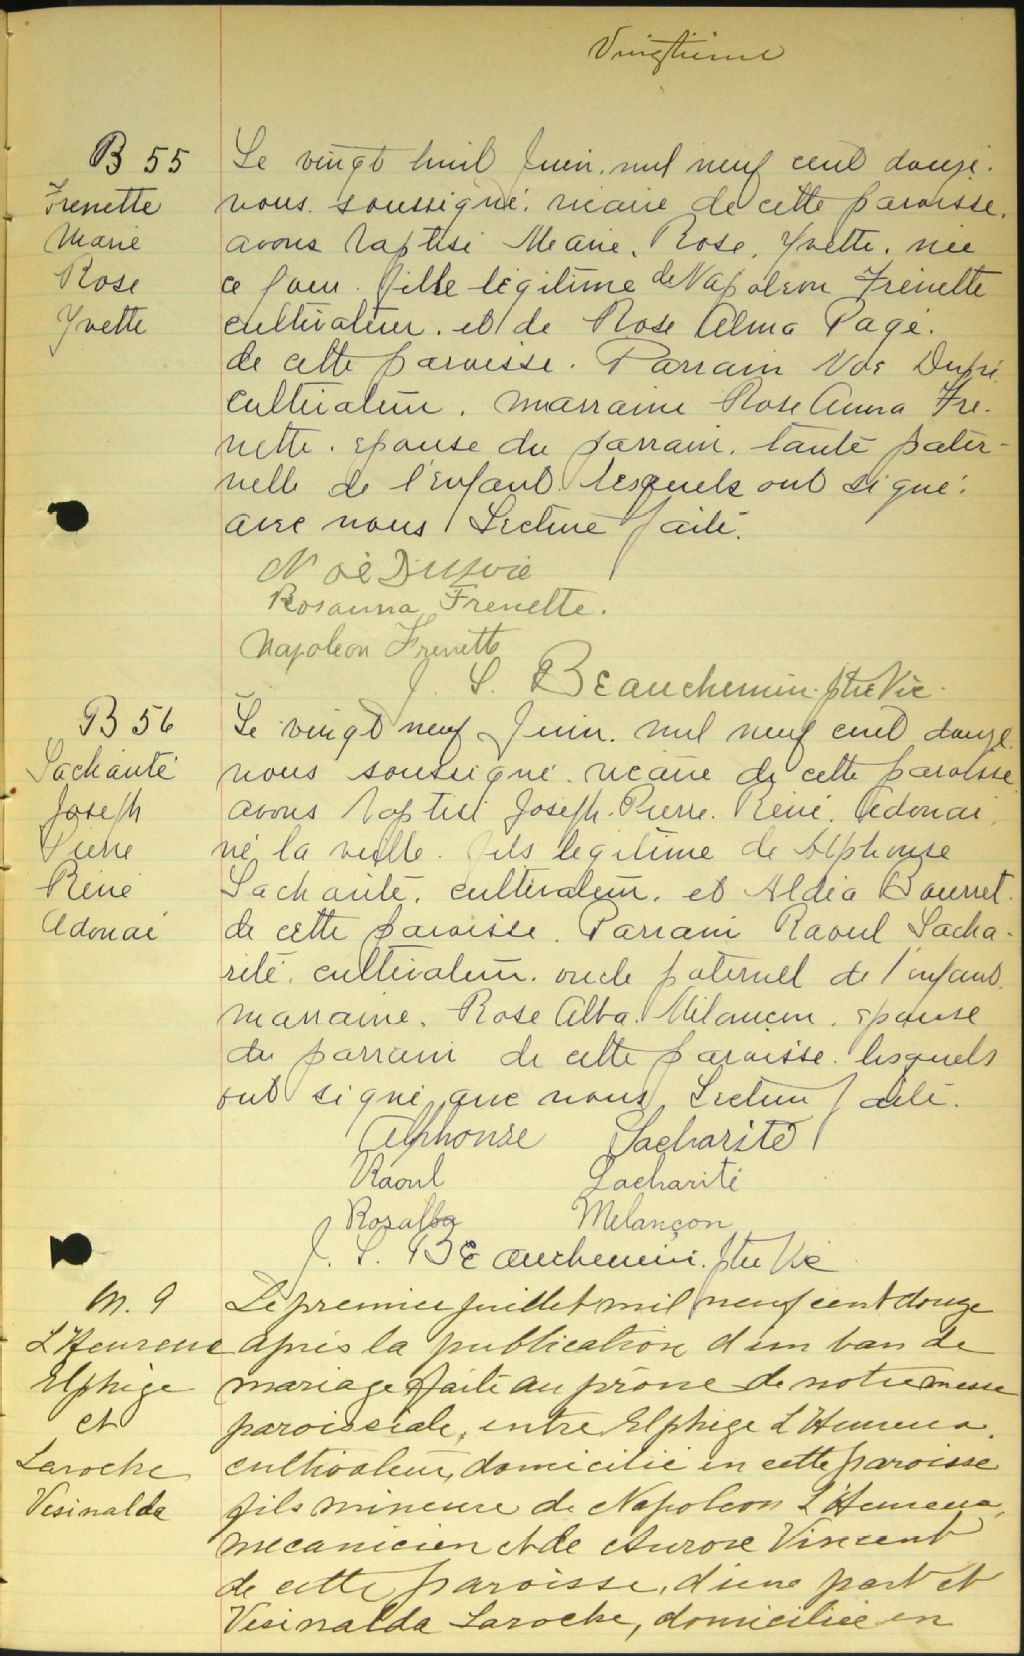 Vingtième
B 55
Frenette
Marie
Rose
Yvette
Le vingt huit Juin. mil neuf cent douze.
nous. soussigné. vicaire de cette paroisse.
avons baptisé Marie. Rose. Yvette. née
ce jour. fille légitime de Napoléon Frenette
cultivateur. et de Rose Alma Pagé.
de cette paroisse. Parrain Noé Dupré
cultivateur. marraine Rose Anna Fre-
nette. épouse du parrain. tante pater-
nelle de l'enfant. lesquels ont signé.
avec nous Lecture faite.
Noé
Rosanna Frenette.
Napoleon Frenette
J. S. Beauchemin. ptre Vic.
B 56
Lacharité
Joseph
Pierre
Réné
Adonai
Le vingt neuf Juin. mil neuf cent douze.
nous soussigné. vicaire de cette paroisse
avons baptisé Joseph. Pierre. Réné. Adonai.
né la veille. fils légitime de Alphonse
Lacharité. cultivateur. et Aldéa Bourret.
de cette paroisse. Parrain Raoul Lacha-
rité. cultivateur. oncle paternel de l'enfant.
marraine. Rose Alba. Milançon. épouse
du parrain de cette paroisse. lesquels
ont signé avec nous Lecture faite.
Alphonse Lacharité
Raoul Lacharité
Rosalba Melançon
J. S. Beauchemin. ptre Vic
M. 9
L'Heureux
Elphège
et
Laroche
Vesinalda
Le premier juillet mil neuf cent douze
après la publication d'un ban de
mariage faite au prône de notre messe
paroissiale, entre Elphège L'Heureux.
cultivateur, domicilié en cette paroisse
fils mineure de Napoléon L'Heureux,
mecanicien et de Aurore Vincent
de cette paroisse, d'une part et
Vesinalda Laroche, domiciliée en